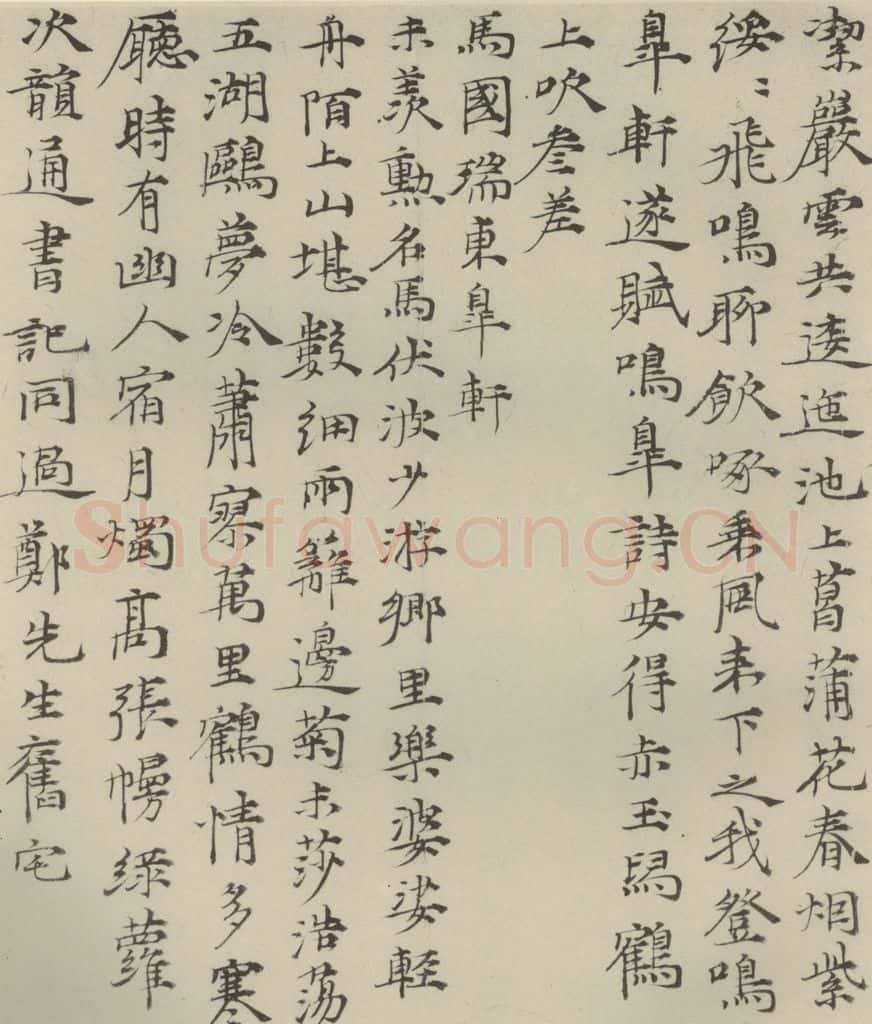 潔嚴雲共逶迤池上菖蒲花春烟紫
綏〻飛鳴聊飲啄乘風来下之我登鳴
皐軒遂賦鳴皐詩安得赤玉舄鶴
上吹叄差
馬國瑞東皐軒
未羨勲名馬伏波少游鄉里樂婆娑輕
舟陌上山堪數細雨籬邊菊未莎浩蕩
五湖鷗夢冷蕭寥萬里鶴情多寒
廳時有幽人宿月燭髙張幔緑蘿
次韻通書記同過鄭先生舊宅
Shufawang.CN